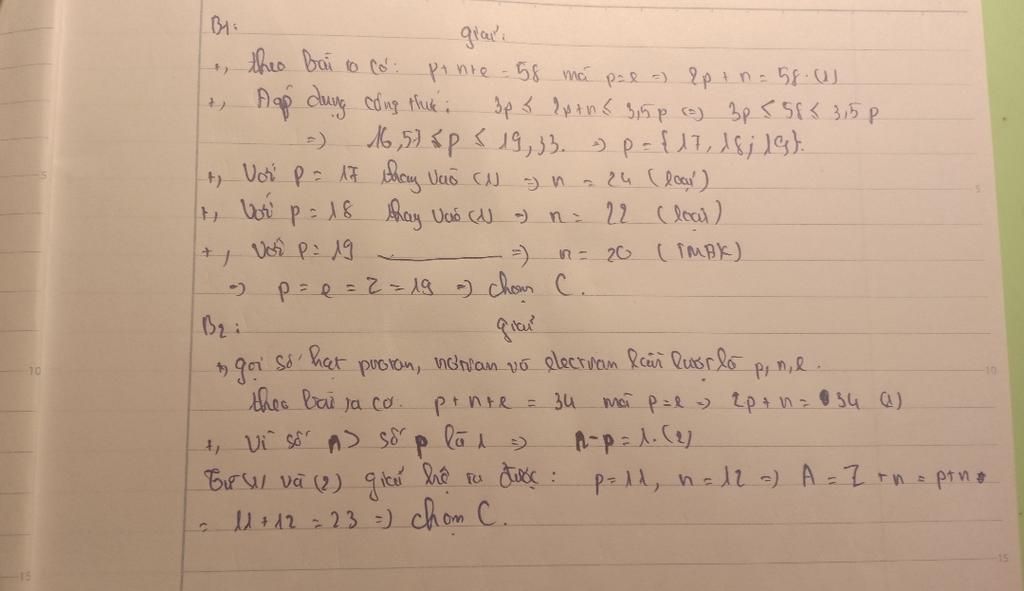 B1:
giải:
+, theo bài ra có: p+n+e = 58 mà p=e => 2p + n = 58. (1)
+, Áp dụng công thức: 3p ≤ 2p+n ≤ 3,5p (=) 3p ≤ 58 ≤ 3,5p
=) 16,57 ≤ p ≤ 19,33. => p = {17, 18; 19}.
+, Với p = 17 thay vào (1) => n = 24 (loại)
+, Với p = 18 thay vào (1) => n = 22 (loại)
+, Với p = 19 ———— =) n = 20 (TMĐK)
=> p = e = Z = 19 => chọn C.
B2:
giải
+, gọi số hạt proton, nơtron và electron lần lượt là p, n, e.
theo bài ra có. p + n + e = 34 mà p=e => 2p + n = 34 (1)
+, Vì số n > số p là 1 => n-p = 1. (2)
Từ (1) và (2) giải hệ ra được: p = 11, n = 12 => A = Z + n = p+n
= 11 + 12 = 23 =) chọn C.
5
10
15
5
10
15